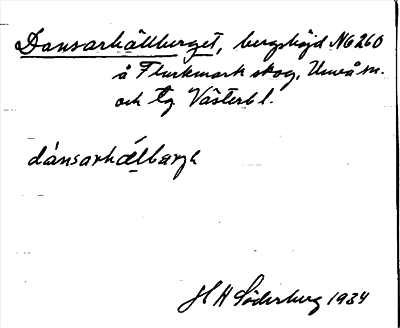 Dansarhällberget, bergshöjd N6260
å Flurkmark skog, Umeå sn.
och tg Västerb l.
dánsarhä́lbarjɛ
H H Söderberg 1934